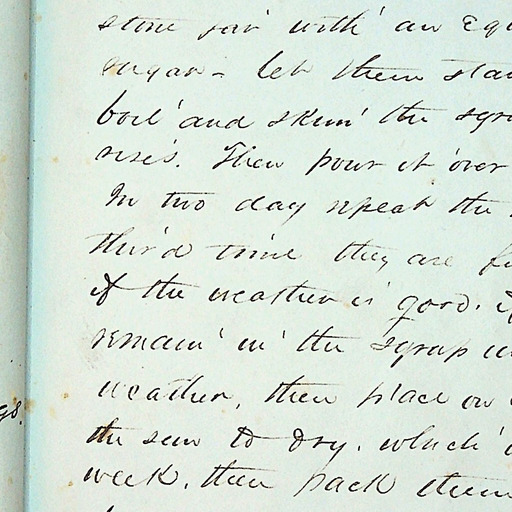 stone jar with an equ
sugar - let them stan
boil and skim the syru
rises. Then pour it over
In two day repeat the
third time they are fi
if the weather is good. if
remain in the syrup un
weather, then place on
the sun to dry. which
week. then pack them
gs.